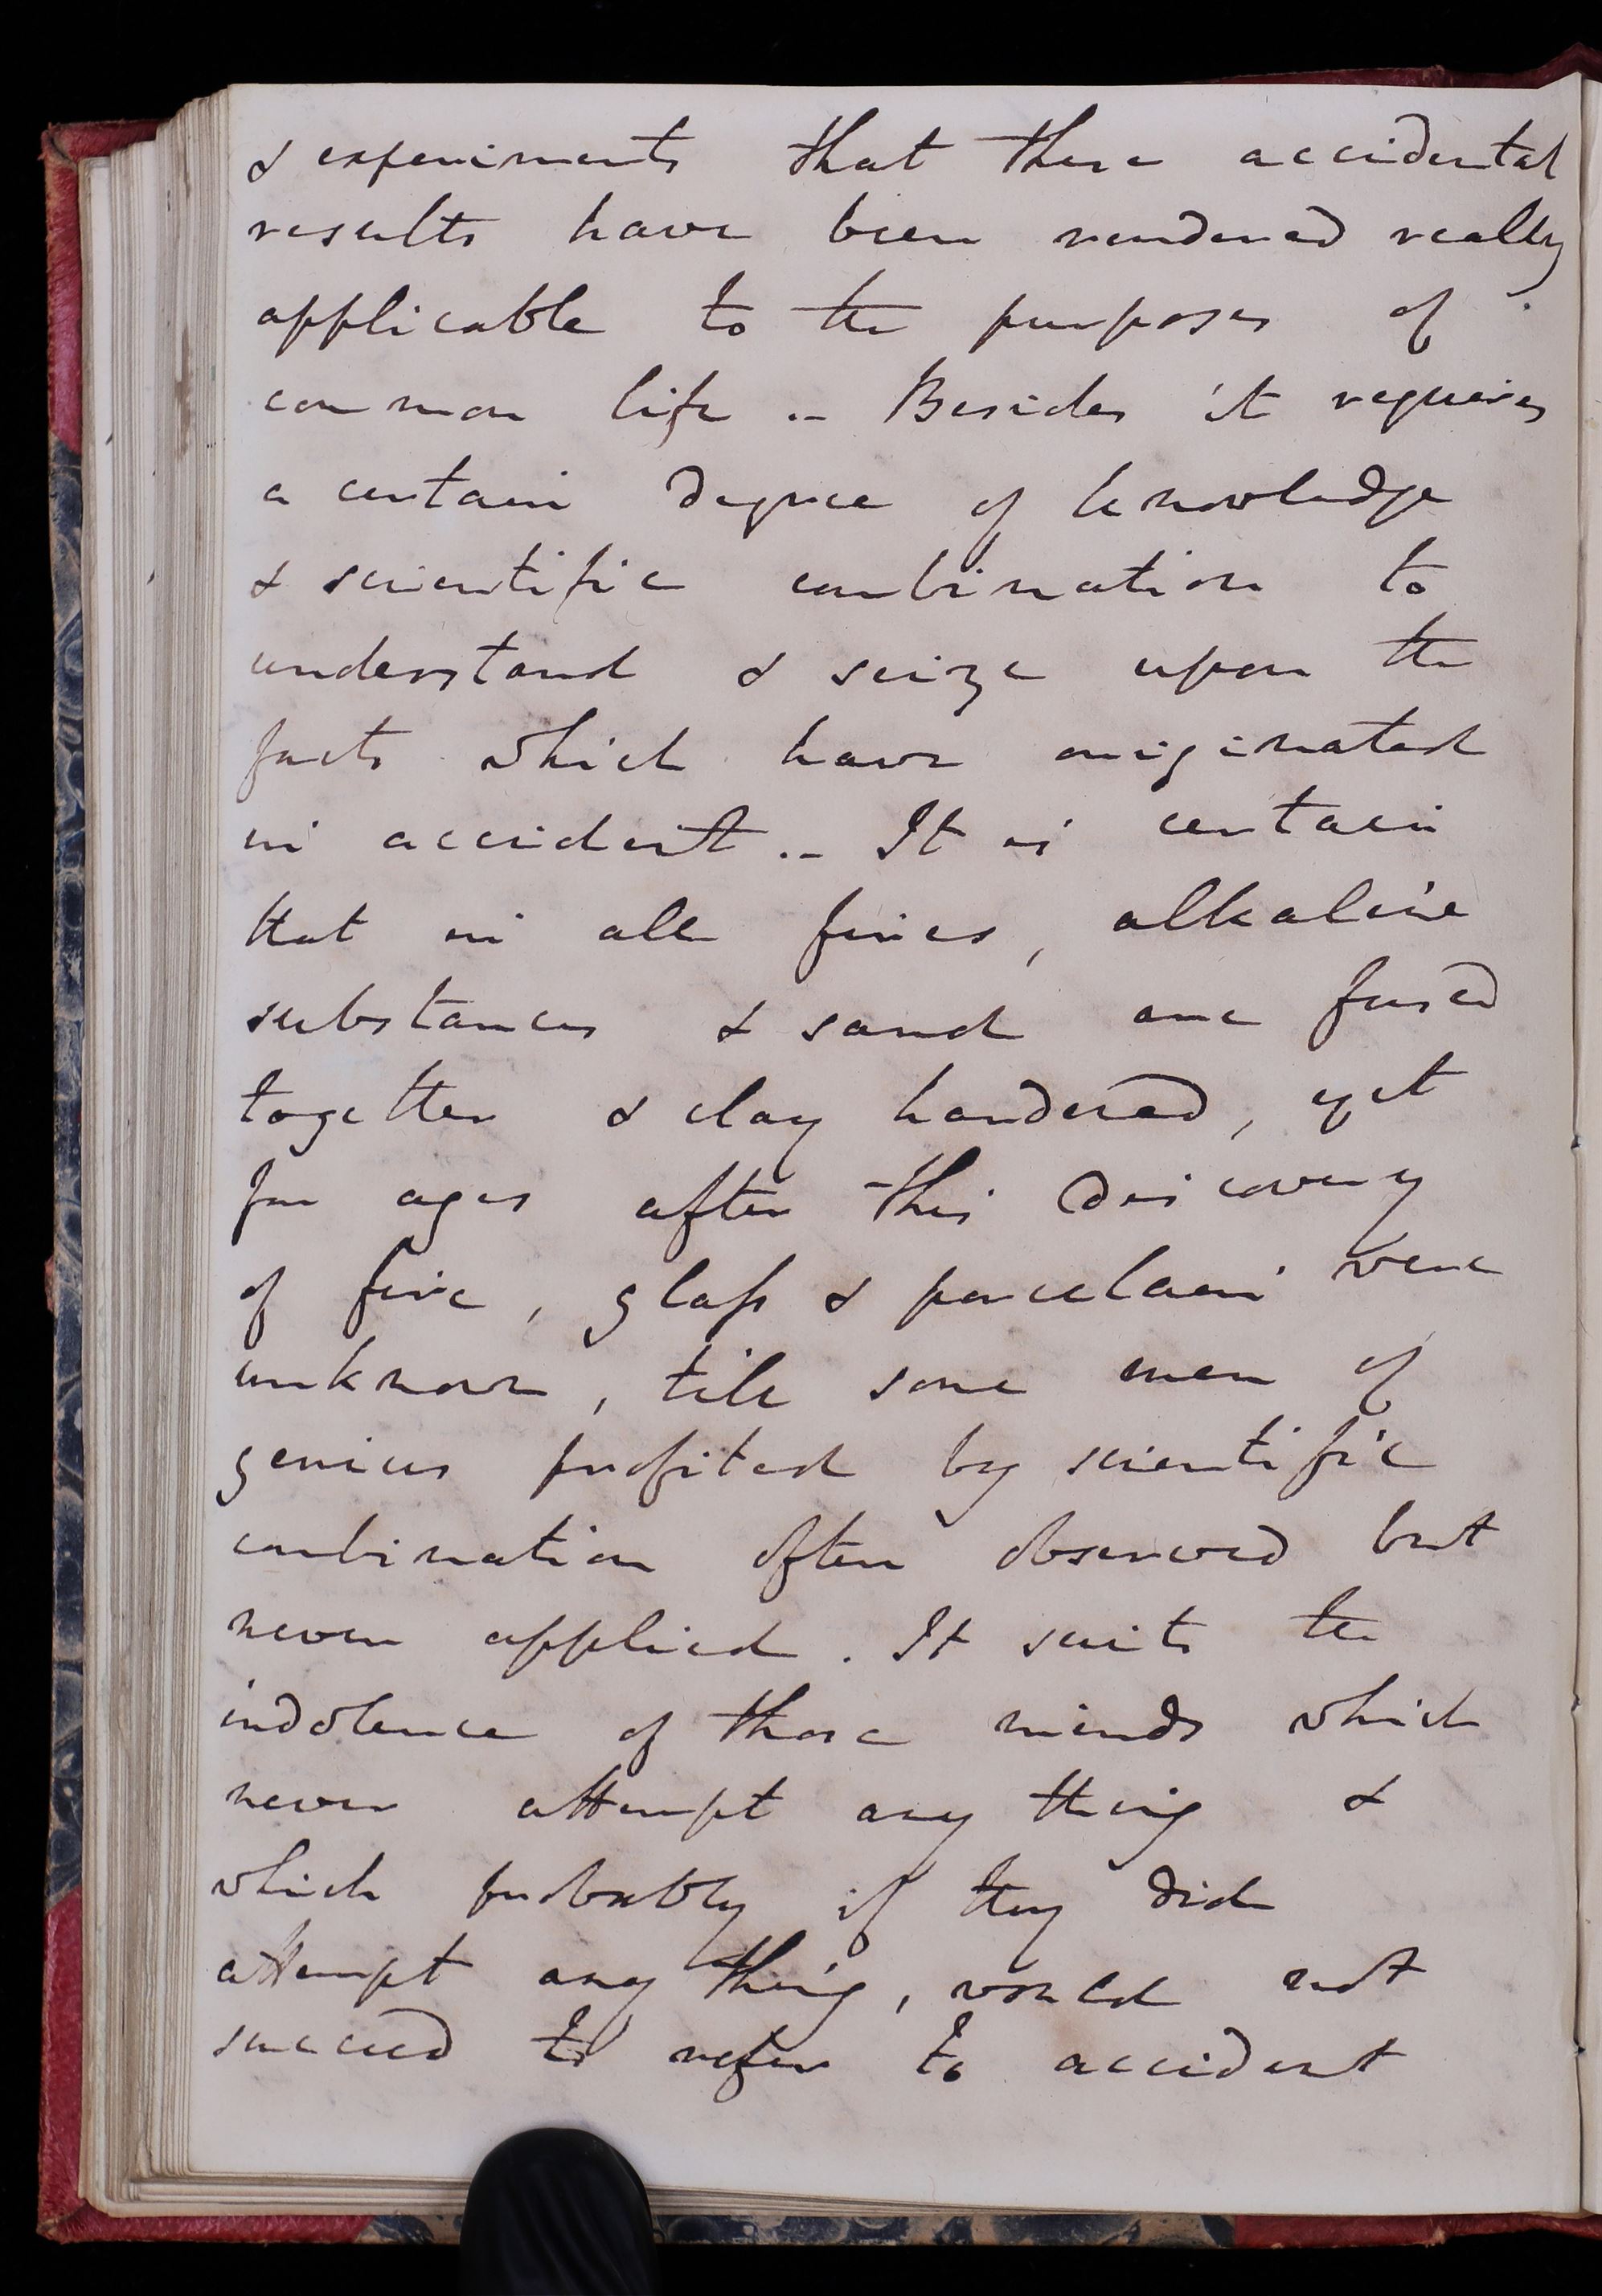 & experiments that these accidental
results have been rendered really
applicable to the purposes of
common life .- Besides it requires
a certain degree of knowledge
& scientific combination to
understand & seize upon the
facts which have originated
in accident .- It is certain
that in all fires, alkaline
substances & sand are fused
together & clay hardened, yet
for ages after this discovery
of fire, glass & porcelain were
unknown, till some men of
genius profited by scientific
combination often observed but
never applied. It suits the
indolence of those minds which
never attempt any thing &
which probably if they did
attempt any thing, would not
succeed to refer to accident